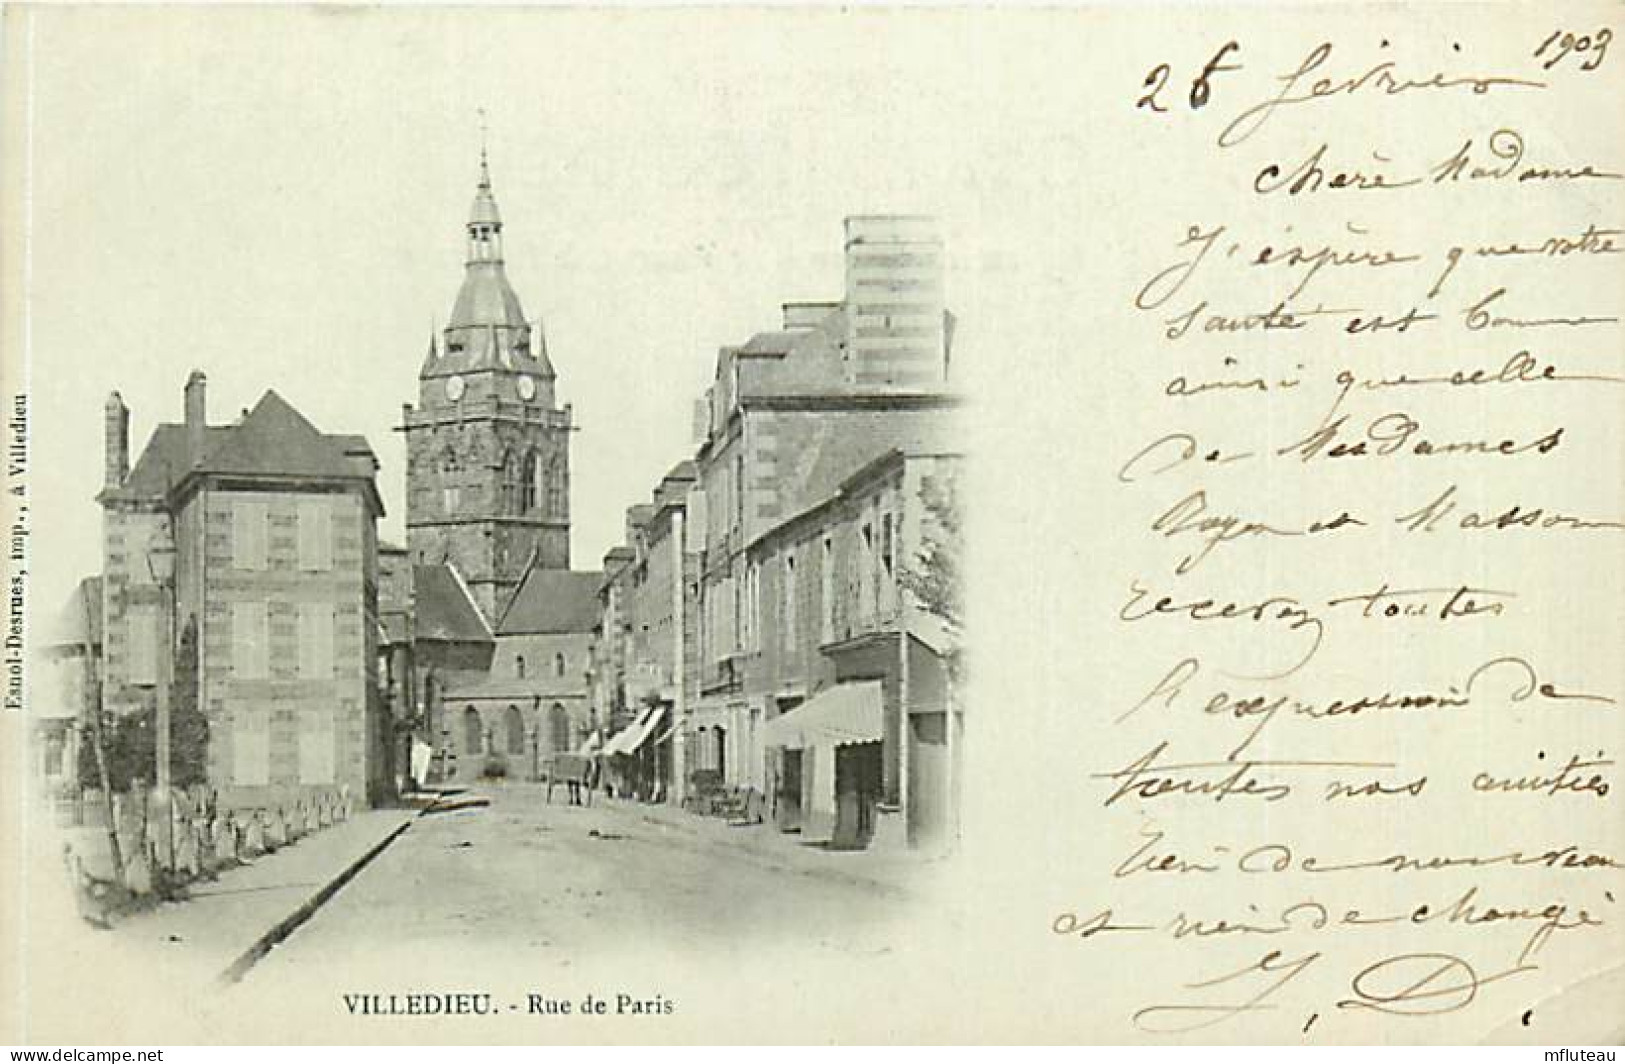 26 février 1903
chère Madame
J'éspère que votre
santé est bonne
ainsi que celle
de Mesdames
et Masson
recevez toutes
l'expression de
toutes nos amitiés
rien de nouveau
et rien de changé
J. D.
VILLEDIEU. - Rue de Paris
Esnol-Desrues, imp., à Villedieu
www.delcampe.net
mfluteau